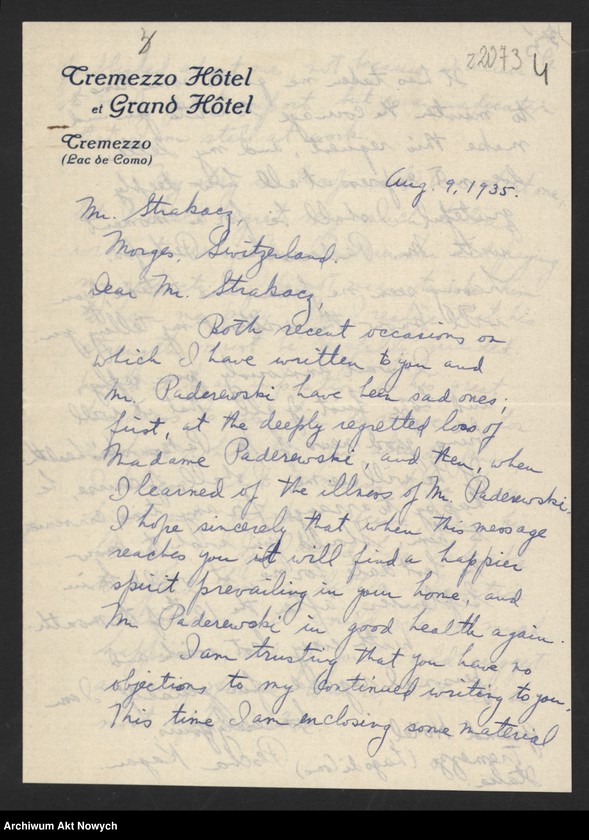 Tremezzo Hôtel
et Grand Hôtel
Tremezzo
(Lac de Como)
22073
4
Aug. 9, 1935.
Mr. Strakacz,
Morges, Switzerland.
Dear Mr. Strakacz,
Both recent occasions on
which I have written to you and
Mr. Paderewski have been sad ones;
first, at the deeply regretted loss of
Madame Paderewski, and then, when
I learned of the illness of Mr. Paderewski.
I hope sincerely that when this message
reaches you it will find a happier
spirit prevailing in your home, and
Mr. Paderewski in good health again.
I am trusting that you have no
objections to my continued writing to you.
This time I am enclosing some material
Archiwum Akt Nowych